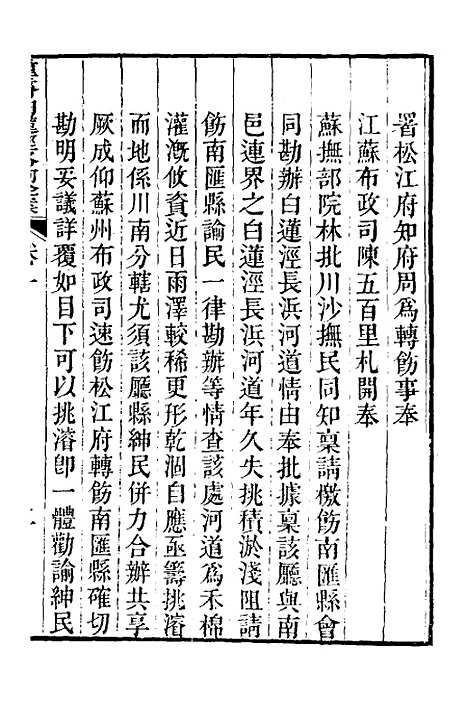 署松江府知府周爲轉飭事奉
江蘇布政司陳五百里札開奉
蘇撫部院林批川沙撫民同知稟請檄飭南匯縣會
同勘辦白蓮涇長浜河道情由奉批據稟該廳與南
邑連界之白蓮涇長浜河道年久失挑積淤淺阻請
飭南匯縣諭民一律勘辦等情查該處河道爲禾棉
灌漑攸資近日雨澤較稀更形乾涸自應亟籌挑濬
而地係川南分轄尤須該廳縣紳民併力合辦共享
厥成仰蘇州布政司速飭松江府轉飭南匯縣確切
勘明妥議詳覆如目下可以挑濬卽一體勸諭紳民